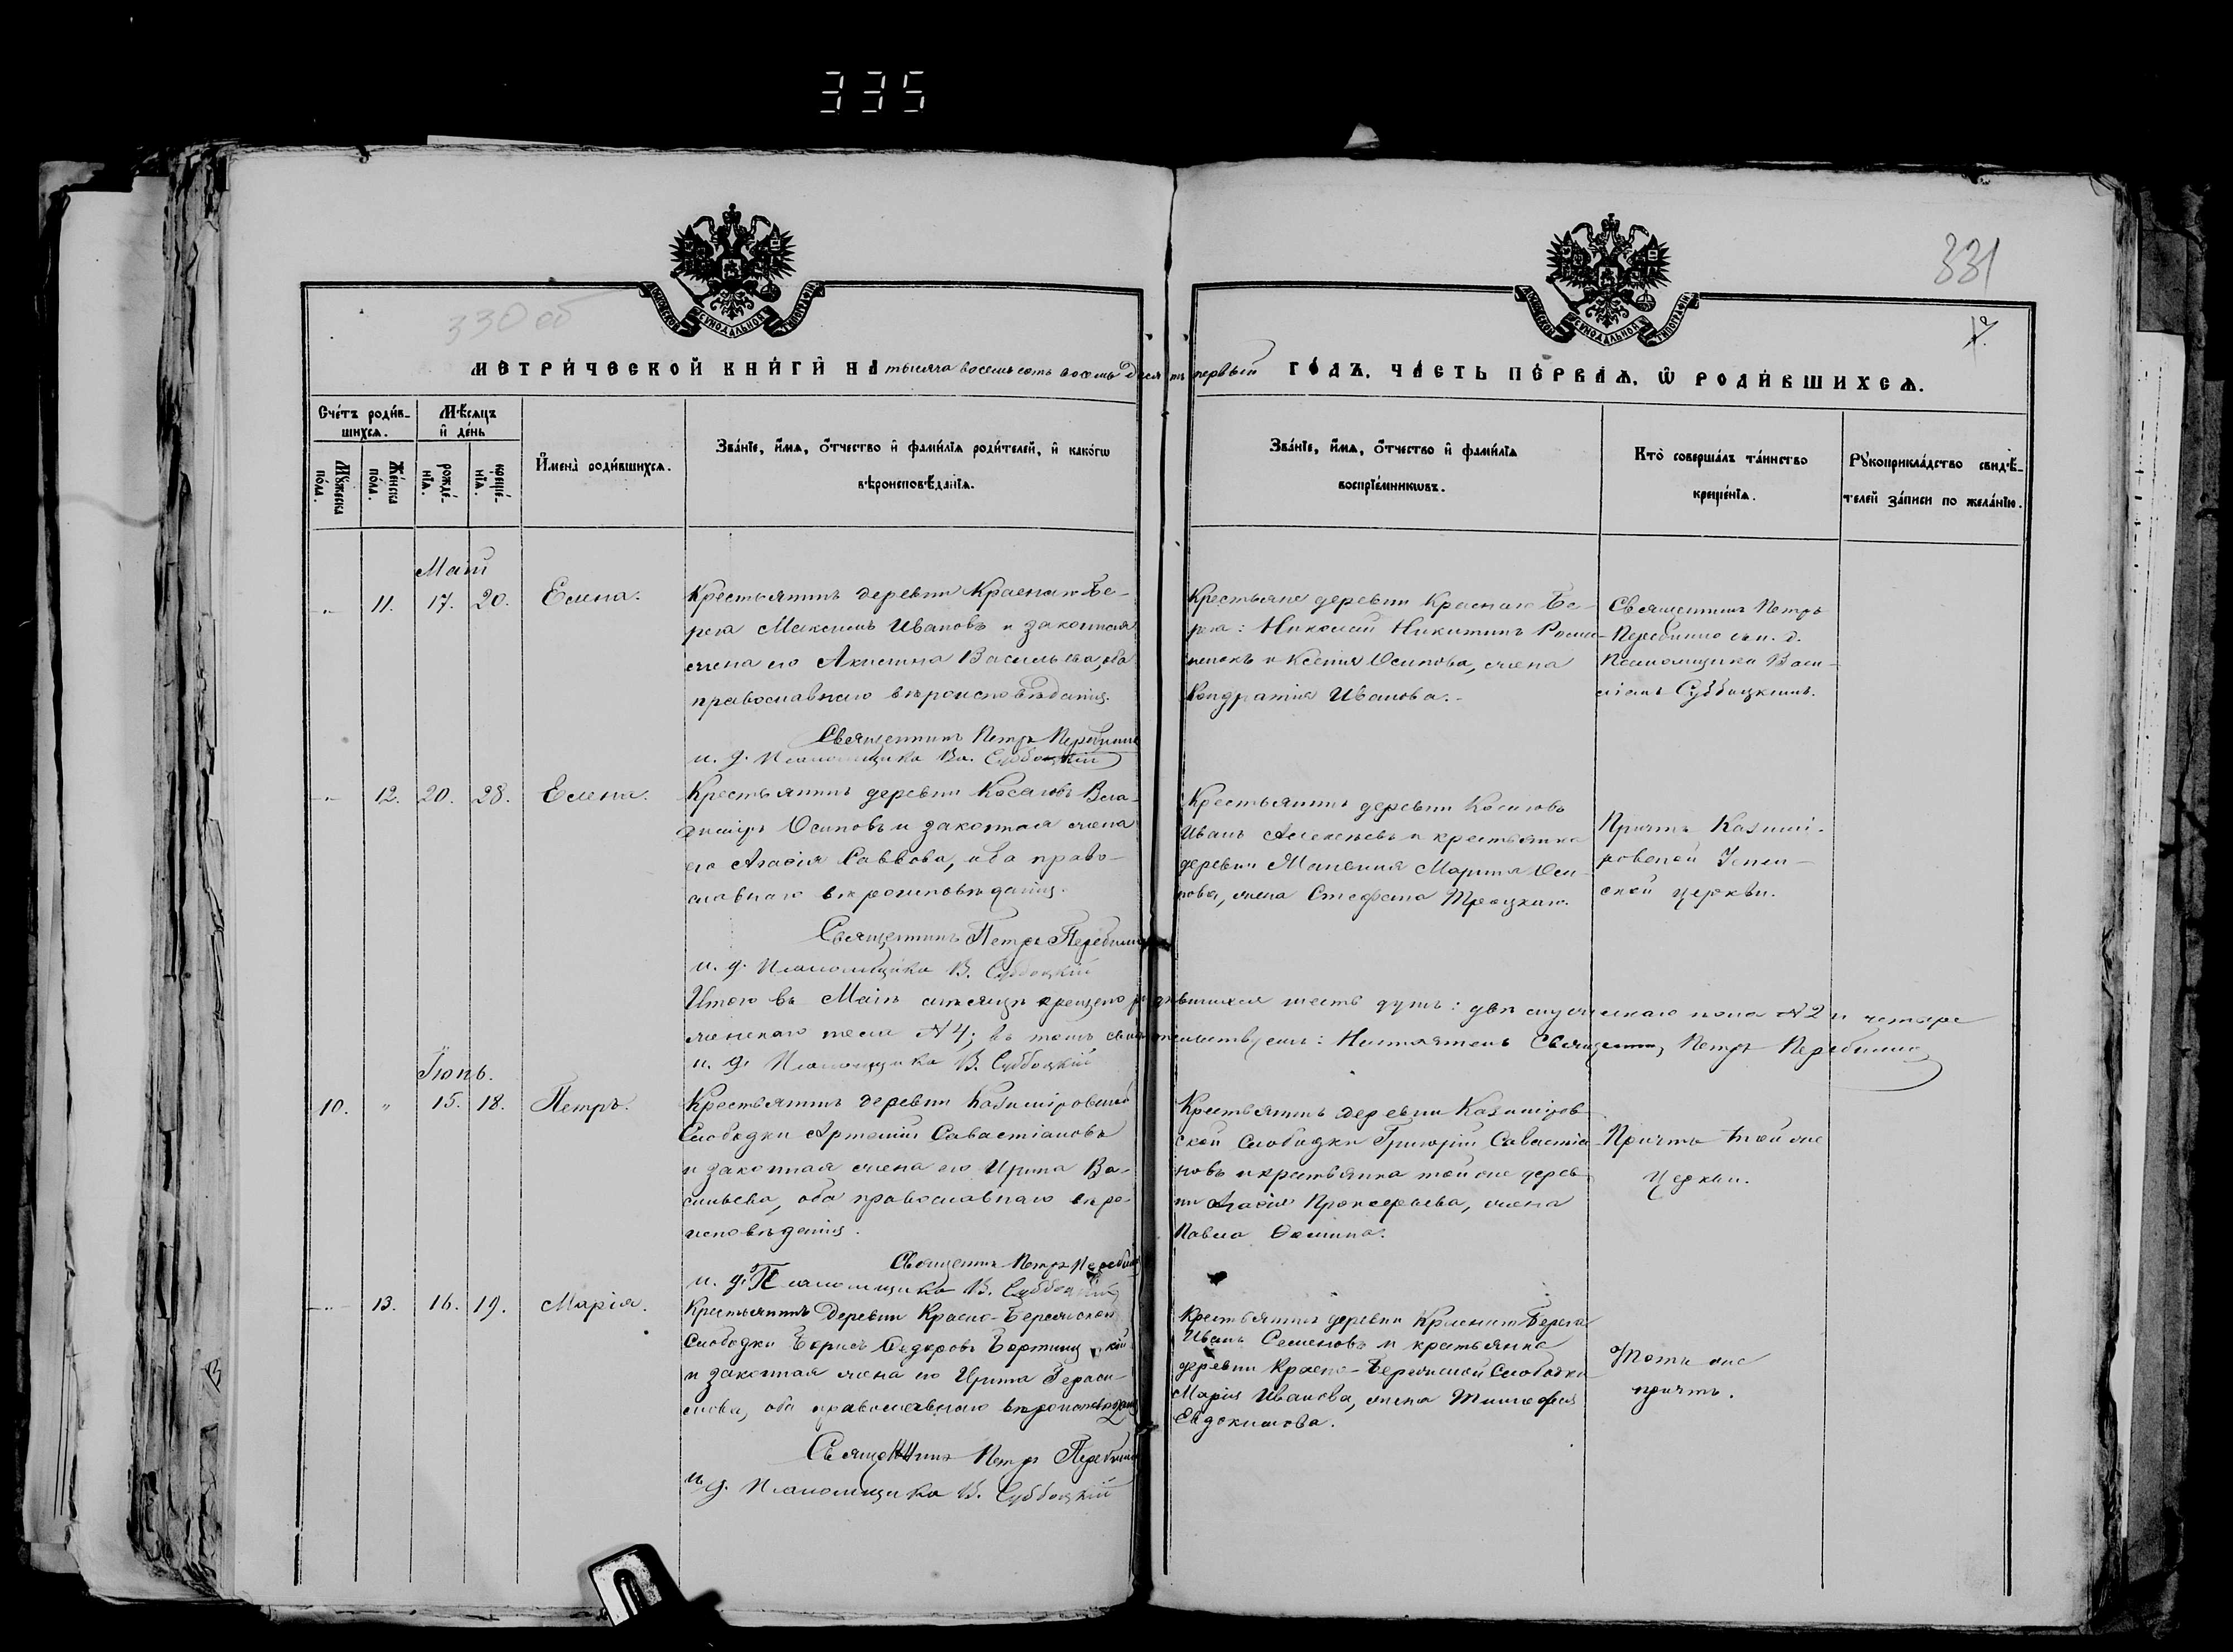 335
331
330 об
МОСКОВСКОЙ СУНОДАЛЬНОЙ ТИПОГРАФІИ
МОСКОВСКОЙ СУНОДАЛЬНОЙ ТИПОГРАФІИ
МЕТРИ́ЧЕСКОЙ КНИ́ГИ НА тысяча восемьсотъ восемьдесятъ первый ГО́ДЪ. ЧА́СТЬ ПЕ́РВАѦ. Ѡ РОДИ́ВШИХСѦ.
Сче́тъ роди́в-
шихсѧ.
Мѣ́сѧцъ
и де́нь
Мꙋ́жеска по́ла.
Же́нска по́ла.
рожде́-нїѧ.
креще́-нїѧ.
И҆мена̀ роди́вшихсѧ.
Зва́нїе, и҆́мѧ, о҆́тчество и҆ фами́лїѧ роди́телей, и҆ како́гѡ
вѣроисповѣ́данїѧ.
Зва́нїе, и҆́мѧ, о҆́тчество и҆ фами́лїѧ
воспрїе́мникѡвъ.
Кто̀ соверша́лъ та́инство
креще́нїѧ.
Рꙋкоприкла́дство свидѣ́-
телей за́писи по жела́нїю.
Май
11. 17. 20. Елена.
Крестьянинъ деревни Краснаго Бе-
рега Максимъ Ивановъ и законная
жена его Акилина Васильева, оба
православнаго вѣроисповѣданія.
Священникъ Петръ
и. д. Псаломщика Ва. Субботкій
Крестьяне деревни Краснаго Бе-
рега: Николай Никитинъ
и Ксенія Осипова, жена
Кондратія Иванова.
Священникъ Петръ
съ и. д.
Псаломщика Васи-
ліемъ Субботкимъ.
12. 20. 28. Елена.
Крестьянинъ деревни Косаковъ Вла-
диміръ Осиповъ и законная жена
его Агафія Саввова, оба право-
славнаго вѣроисповѣданія.
Священникъ Петръ
и. д. Псаломщика В. Субботкій
Крестьянинъ деревни Косаковъ
Иванъ Алексѣевъ и крестьянка
деревни Марѳа Оси-
пова, жена Стефана Троцкаго.
Причтъ Казимі-
ровской Успен-
ской церкви.
Итого въ Маѣ мѣсяцѣ крещено родившихся шесть душъ: двѣ мужескаго пола № 2 и четыре
женскаго пола № 4; въ томъ свидѣтельствуемъ: Настоятель Священникъ Петръ
и. д. Псаломщика В. Субботкій
Іюнь.
10. " 15. 18. Петръ.
Крестьянинъ деревни Казиміровской
Слободки Артемій Савастіановъ
и законная жена его Ирина Ва-
сильева, оба православнаго вѣро-
исповѣданія.
Священникъ Петръ
и. д. Псаломщика В. Субботкій
Крестьянинъ деревни Казиміров-
ской Слободки Григорій Савастіа-
новъ и крестьянка той же дерев-
ни Агафія Прокофьева, жена
Павла Ѳомина.
Причтъ той же
Церкви.
13. 16. 19. Марія.
Крестьянинъ деревни Красно-Бережской
Слободки Борисъ Ѳедоровъ
и законная жена его Ирина Гераси-
мова, оба православнаго вѣроисповѣданія
Священникъ Петръ
и. д. Псаломщика В. Субботкій
Крестьянинъ деревни Краснаго Берега
Иванъ Семеновъ и крестьянка
деревни Красно-Бережской Слободки
Марія Иванова, жена Тимофея
Евдокимова.
Тотъ же
причтъ.